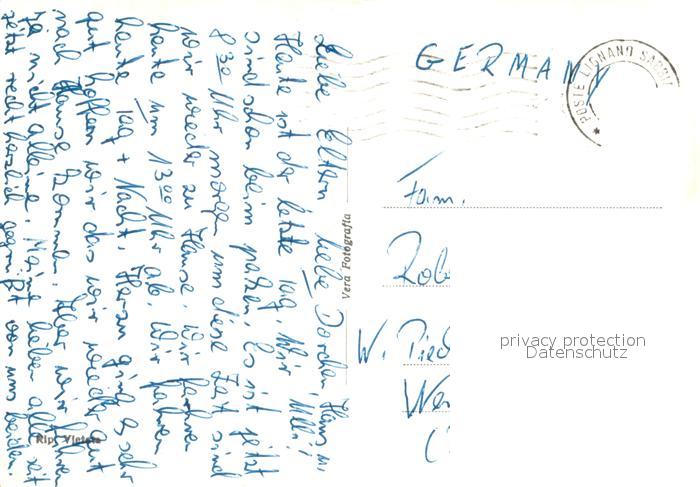 Liebe Eltern, liebe Dorchen, Hans u. Willi!
Heute ist der letzte Tag. Wir
sind schon beim packen. Es ist jetzt
8 30 Uhr morgen um diese Zeit sind
wir wieder zu Hause. Wir fahren
heute um 13 00 Uhr ab. Wir fahren
heute Tag + Nacht. Herzu ging es sehr
gut hoffen wir das wir wieder gut
nach Hause kommen. Aber wir fahren
ja nicht alleine.
jetzt recht herzlich gegrüßt von uns beiden.
Rip. Vietata
Vera Fotografia
GERMANY
POSTE LIGNANO SABBI
Fam.
Rob
W. Pied
Wer
privacy protection
Datenschutz